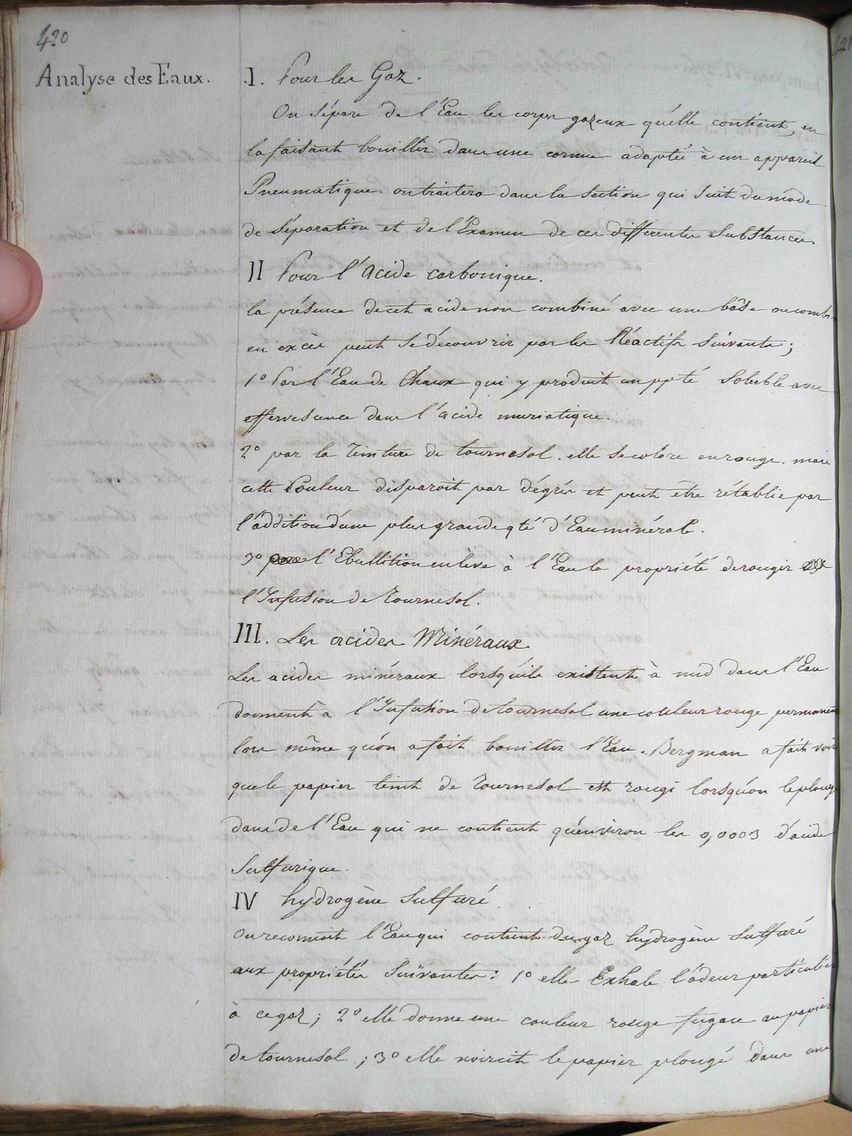 420
Analyse des Eaux.
I. Pour les Gaz.
On sépare de l'Eau les corps gazeux qu'elle contient, en
la faisant bouillir dans une cornue adaptée à un appareil
Pneumatique. on traitera dans la section qui suit du mode
de séparation et de l'Examen de ces differentes substances
II Pour l'acide carbonique.
la présence de cet acide non combiné avec une base ou combi
en excès peut se découvrir par les Réactifs suivants;
1º Par l'Eau de Chaux qui y produit un ppté soluble avec
effervesence dans l'acide muriatique.
2º par la Teinture de tournesol. elle se colore en rouge. mais
cette Couleur disparoit par dégrés et peut être rétablie par
l'addition d'une plus grande qté d'Eau minérale.
3º l'Ebullition enlève à l'Eau la propriété de rougir
l'Infusion de Tournesol.
III. Les acides Minéraux
Les acides minéraux lorsqu'ils existent à nud dans l'Eau
donnent à l'Infusion de tournesol une couleur rouge permanen
lors même qu'on a fait bouillir l'Eau. Bergman a fait voir
que le papier teint de Tournesol est rougi lorsqu'on le plong
dans de l'Eau qui ne contient qu'environ les 0,0003 d'acide
Sulfurique.
IV hydrogène Sulfuré.
On reconnoit l'Eau qui contient du gaz hydrogène Sulfuré
aux propriétés Suivantes: 1º elle Exhale l'odeur particulier
à ce gaz; 2º elle donne une couleur rouge fugace au papier
de tournesol; 3º elle noircit le papier plongé dans une